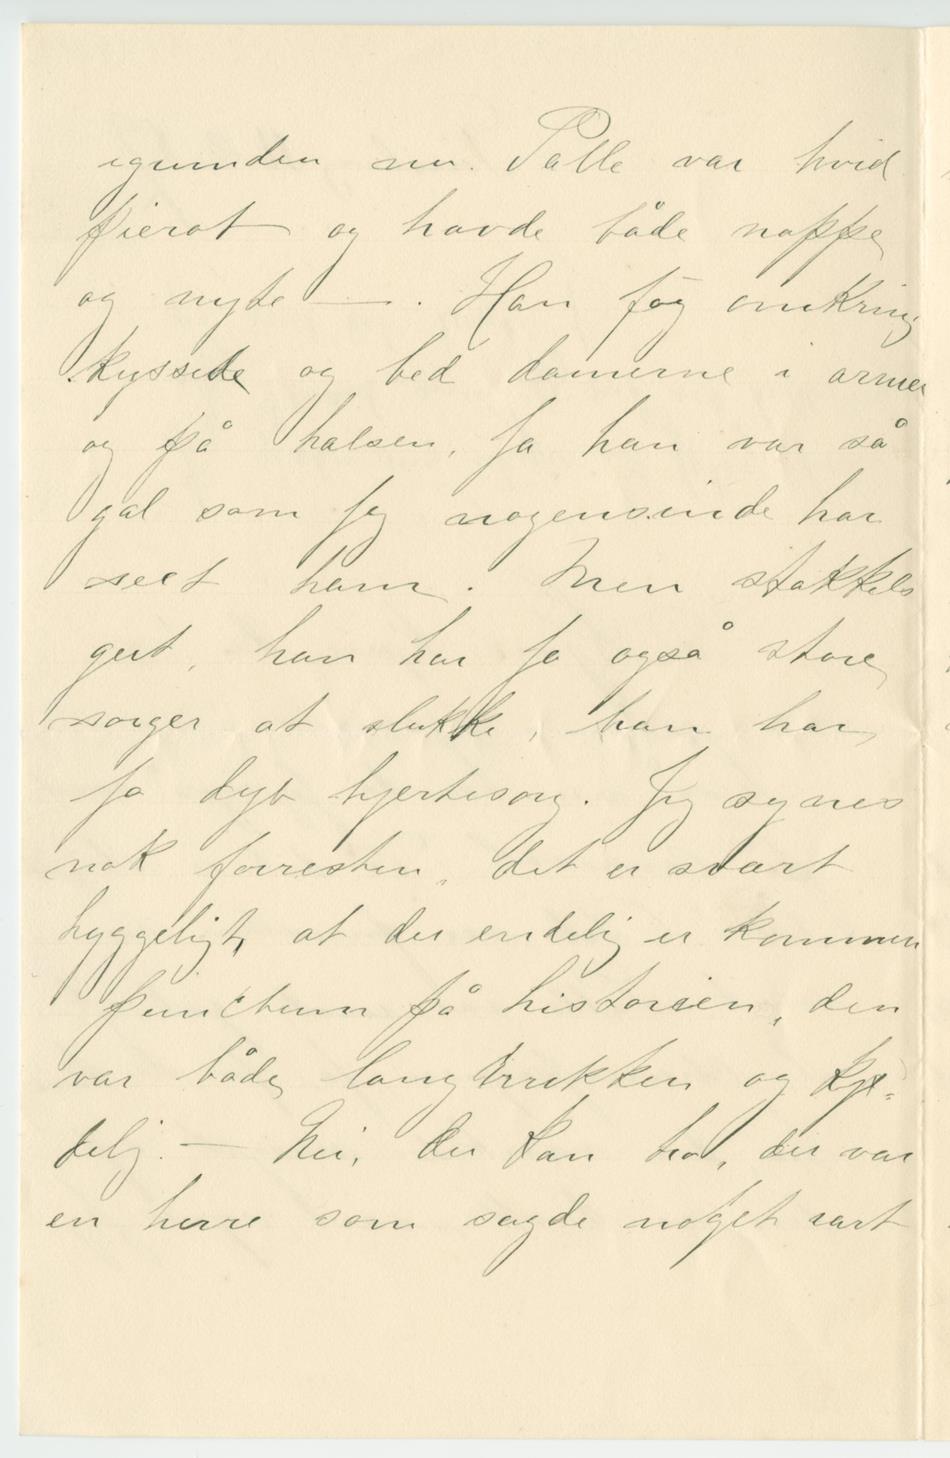 igrunden nu. Palle var hvid
pierot og havde både nappe
og nyte —. Han fög omkring
kyssede og bed damerne i armen
og på halsen, ja han var så
gal som jeg nogensinde har
seet ham. Men stakkels
gut, han har jo også store
sorger at slukke, han har
jo dyb hjertesorg. Jeg synes
nok forresten, det er svært
hyggeligt, at der endelig er kommen
punctum på historien, den
var både langtrukken og kje-
delig. — Nei, du kan tro, der var
en herre som sagde noget rart